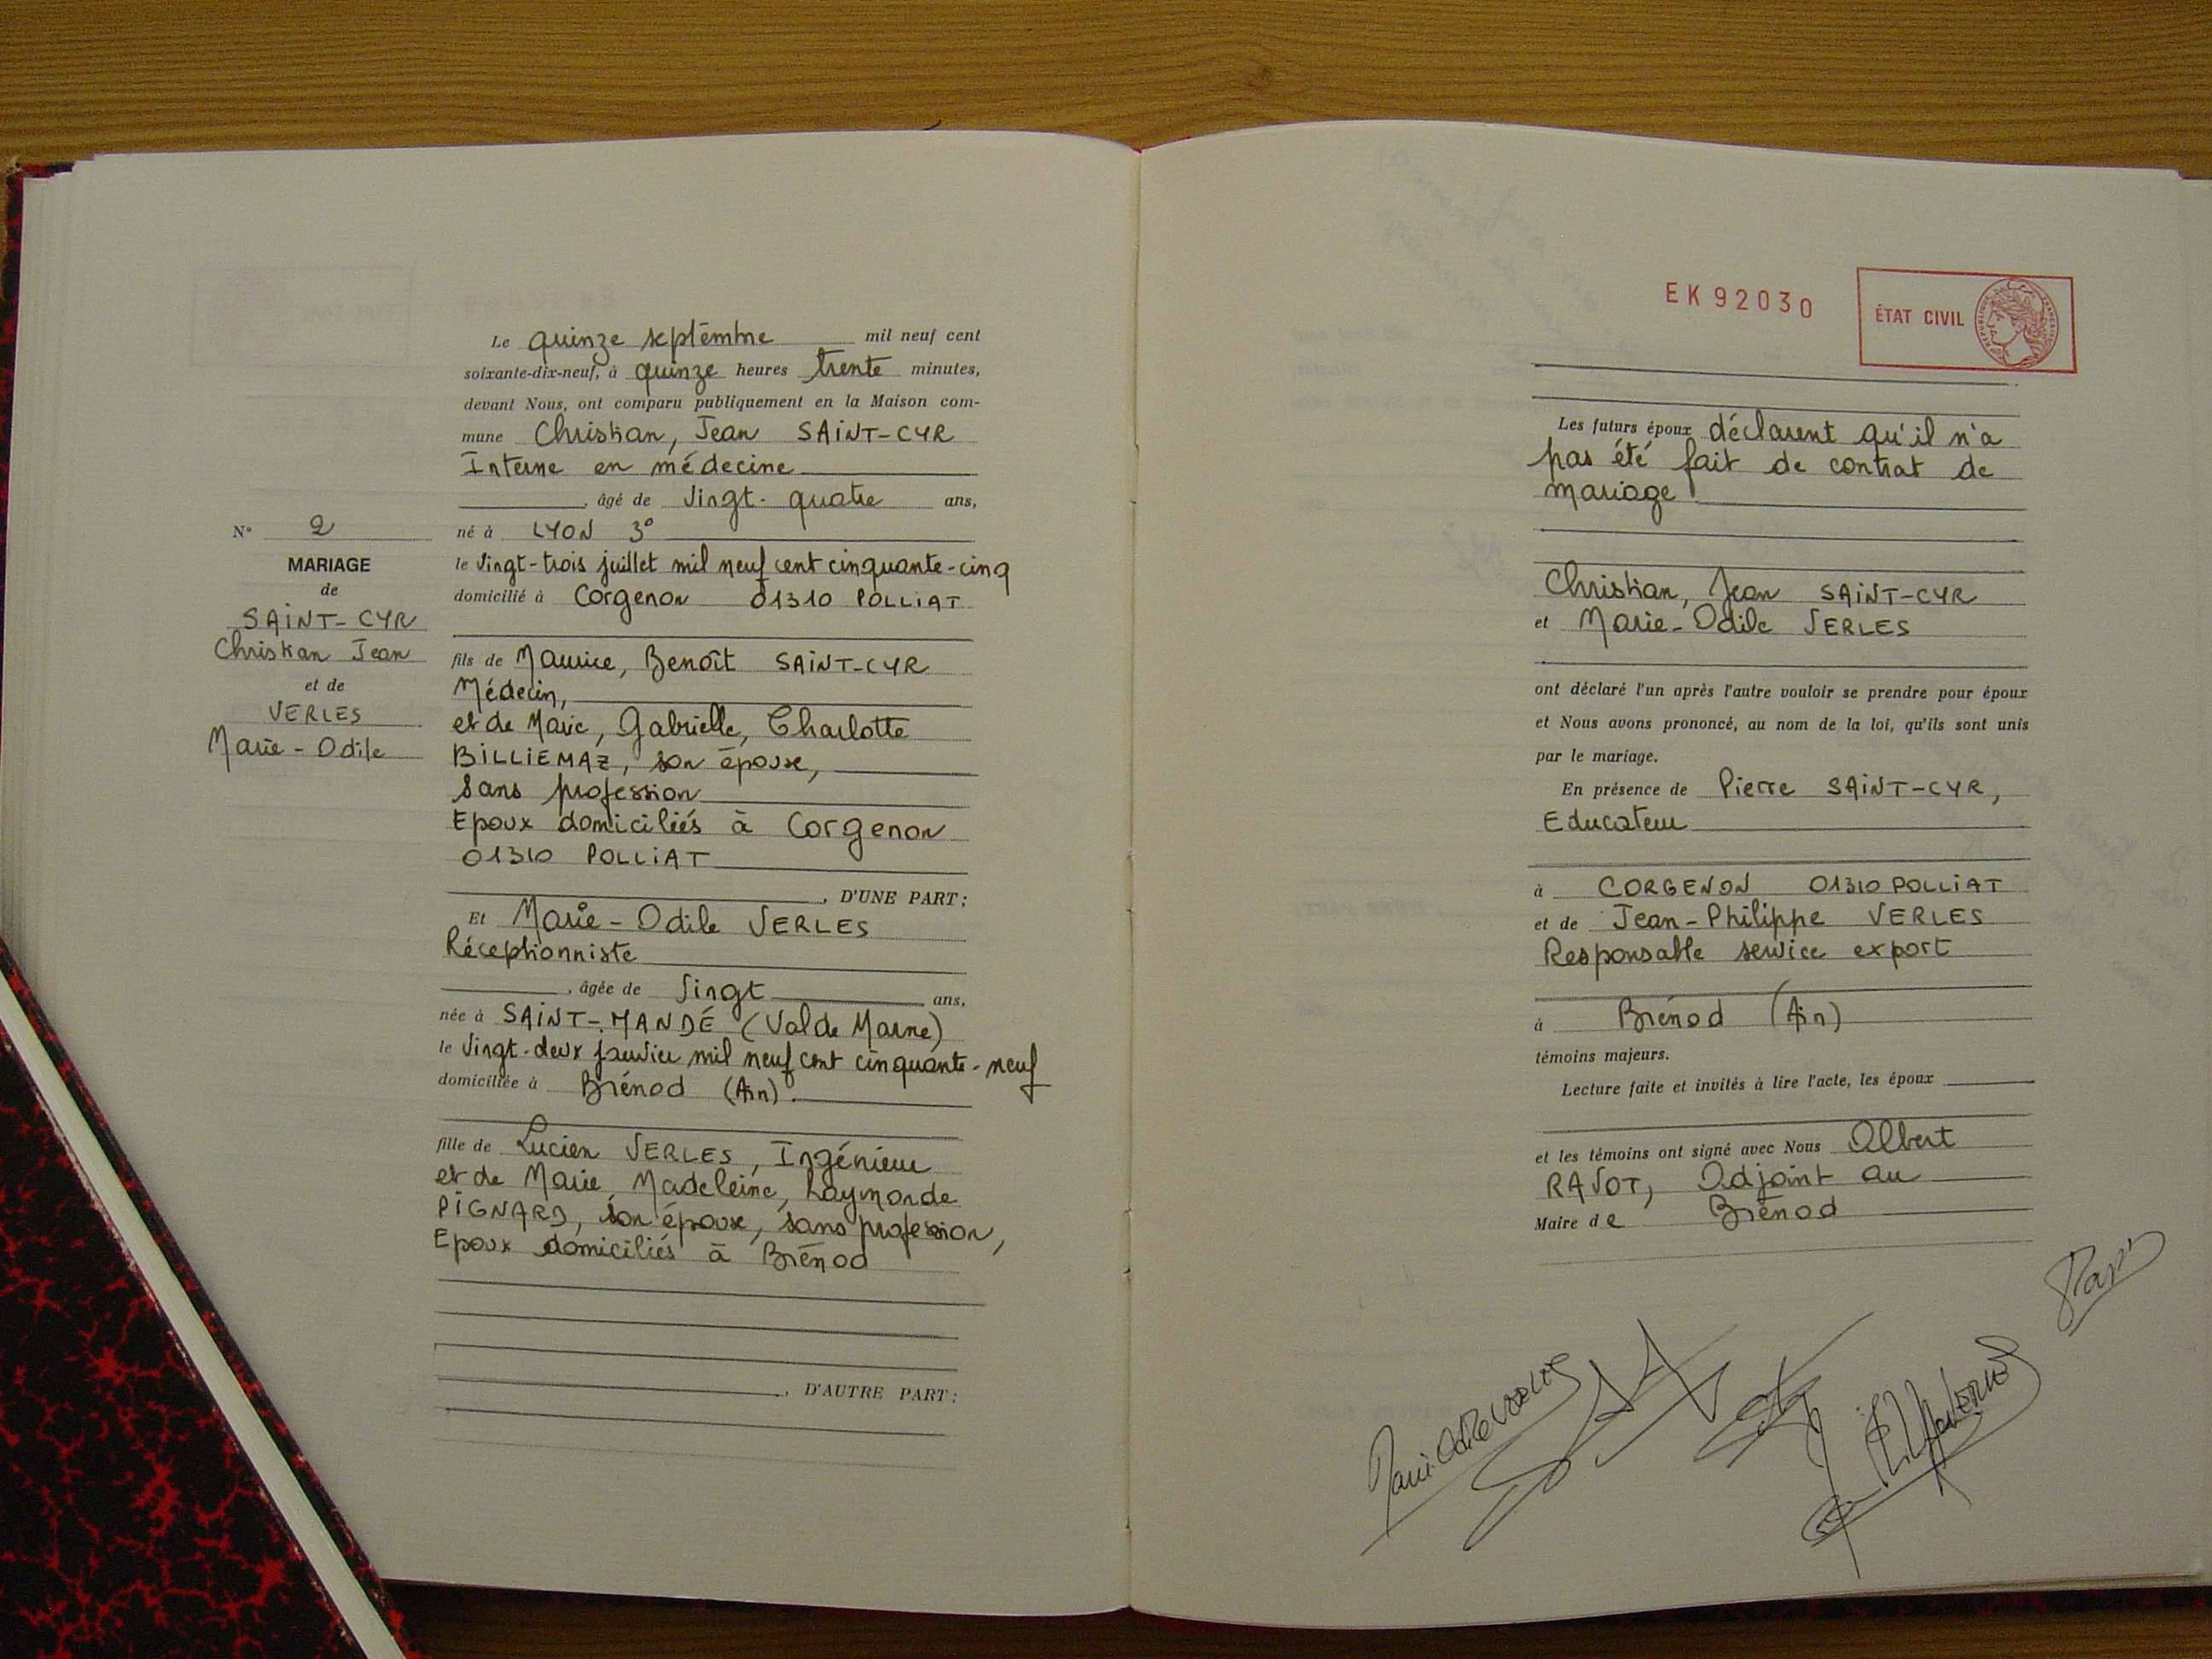 Le quinze septembre mil neuf cent
soixante-dix-neuf, à quinze heures trente minutes,
devant Nous, ont comparu publiquement en la Maison com-
mune Christian, Jean SAINT-CYR
Interne en médecine
, âgé de vingt-quatre ans,
né à LYON 3°
le vingt-trois juillet mil neuf cent cinquante-cinq
domicilié à Corgenon 01310 POLLIAT
fils de Maurice, Benoît SAINT-CYR
Médecin,
et de Marie, Gabrielle, Charlotte
BILLIEMAZ, son épouse,
sans profession
Epoux domiciliés à Corgenon
01310 POLLIAT
, D'UNE PART :
Et Marie-Odile VERLES
Réceptionniste
, âgée de vingt ans,
née à SAINT-MANDÉ (Val de Marne)
le vingt-deux janvier mil neuf cent cinquante-neuf
domiciliée à Brénod (Ain).
fille de Lucien VERLES, Ingénieur
et de Marie Madeleine, Raymonde
PIGNARD, son épouse, sans profession,
Epoux domiciliés à Brénod
, D'AUTRE PART :
N° 2
MARIAGE
de
SAINT-CYR
Christian Jean
et de
VERLES
Marie-Odile
EK92030
ÉTAT CIVIL
RÉPUBLIQUE FRANÇAISE
Les futurs époux déclarent qu'il n'a
pas été fait de contrat de
mariage
Christian, Jean SAINT-CYR
et Marie-Odile VERLES
ont déclaré l'un après l'autre vouloir se prendre pour époux
et Nous avons prononcé, au nom de la loi, qu'ils sont unis
par le mariage.
En présence de Pierre SAINT-CYR,
Educateur
à CORGENON 01310 POLLIAT
et de Jean-Philippe VERLES
Responsable service export
à Brénod (Ain)
témoins majeurs.
Lecture faite et invités à lire l'acte, les époux
et les témoins ont signé avec Nous Albert
RAVOT, Adjoint au
Maire de Brénod